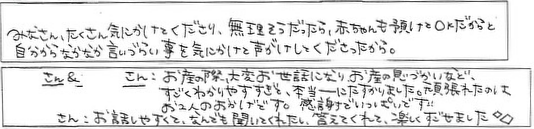 みなさん、たくさん気にかけてくださり、無理そうだったら、赤ちゃんも預けてOKだからと
自分からなかなか言いづらい事を気にかけて声がけしてくださったから。
さん& さん:お産の際、大変お世話になり、お産の息づかいなど、
すごくわかりやすすぎて、本当ーにたすかりました。頑張れたのは
お2人のおかげです。感謝でいっぱいです!!
さん:お話しやすくて、なんでも聞いてくれたし、答えてくれて、楽しくすごせました◇◇